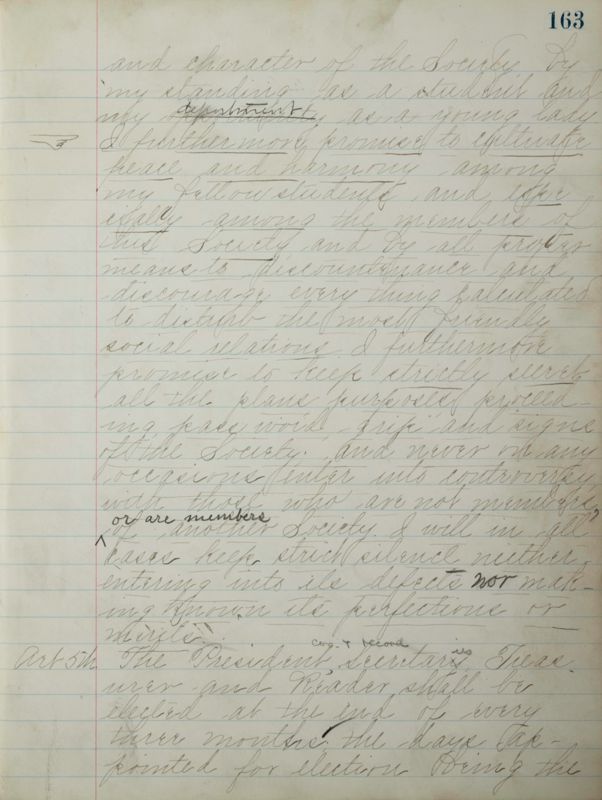 163
and character of the Society by
my standing as a student and
my deportment as a young lady
I furthermore promise to cultivate
peace and harmony among
my fellow students and espe
cially among the members of
this Society and by all proper
means to discountenance and
discourage every thing calculated
to disturb the most friendly
social relations. I furthermore
promise to keep strictly secret
all the plans purposes, proceed-
ing pass word grip and signs
of the Society. and never on any
occasions enter into controversy
with those who are not members,
or are members
of another Society. I will in all
cases keep strict silence neither
entering into its defects nor mak-
ing known its perfections or
merits".
cor. & record
Art 5th The President, Secretaries, Treas
urer and Reader shall be
elected at the end of every
three months, the days ap-
pointed for election being the